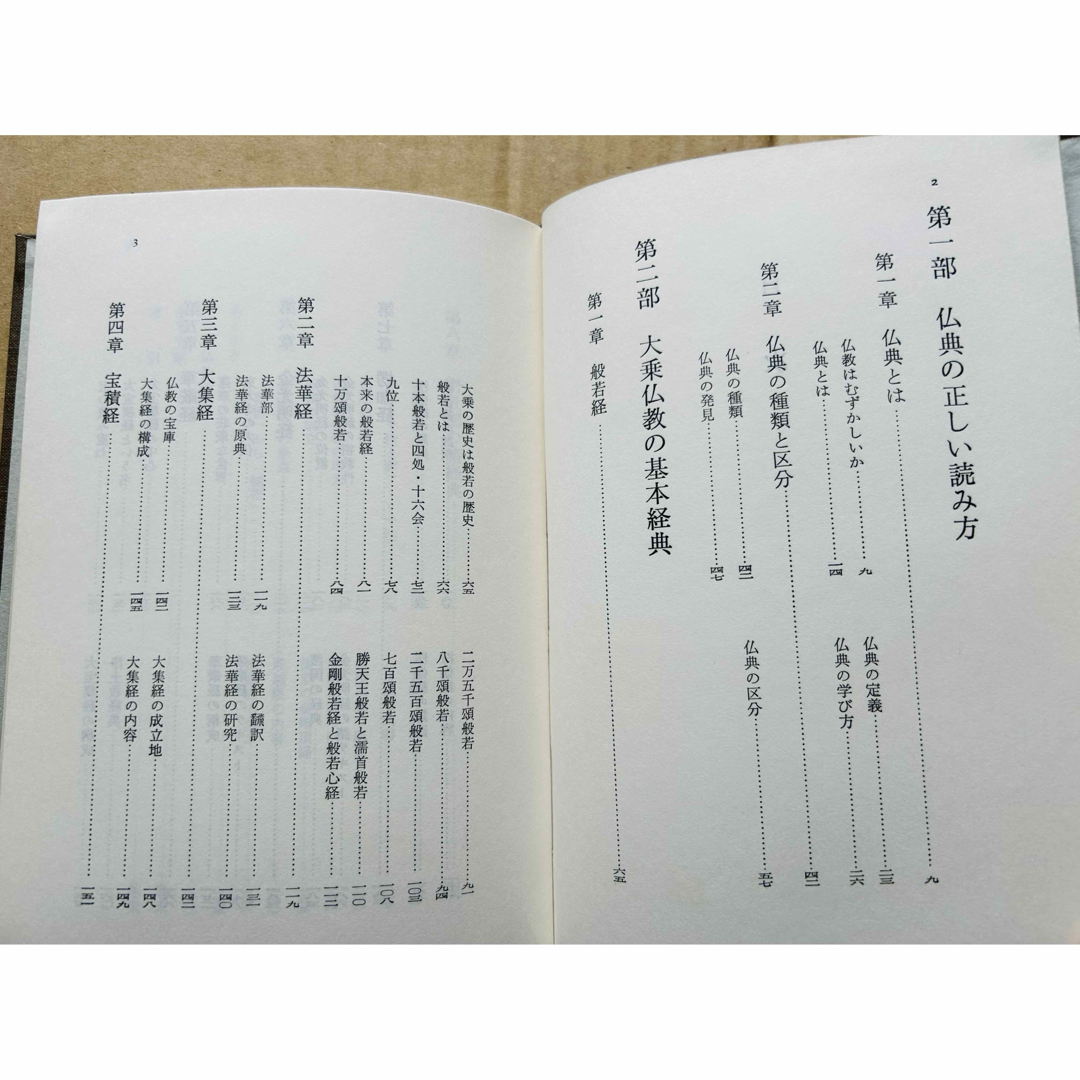 2
第一部　仏典の正しい読み方
第一章　仏典とは……九
仏教はむずかしいか……九
仏典の定義……二三
仏典とは……一四
仏典の学び方……二六
第二章　仏典の種類と区分……四二
仏典の種類……四二
仏典の区分……五七
仏典の発見……四七
第二部　大乗仏教の基本経典
第一章　般若経……六五
3
大乗の歴史は般若の歴史……六五
二万五千頌般若……九一
般若とは……六六
八千頌般若……九四
十本般若と四処・十六会……七三
二千五百頌般若……一〇三
九位……七八
七百頌般若……一〇八
本来の般若経……八一
勝天王般若と濡首般若……一一〇
十万頌般若……八四
金剛般若経と般若心経……一一二
第二章　法華経……一一九
法華部……一一九
法華経の翻訳……一三一
法華経の原典……一二三
法華経の研究……一四〇
第三章　大集経……一四二
仏教の宝庫……一四二
大集経の成立地……一四八
大集経の構成……一四五
大集経の内容……一四九
第四章　宝積経……一五一